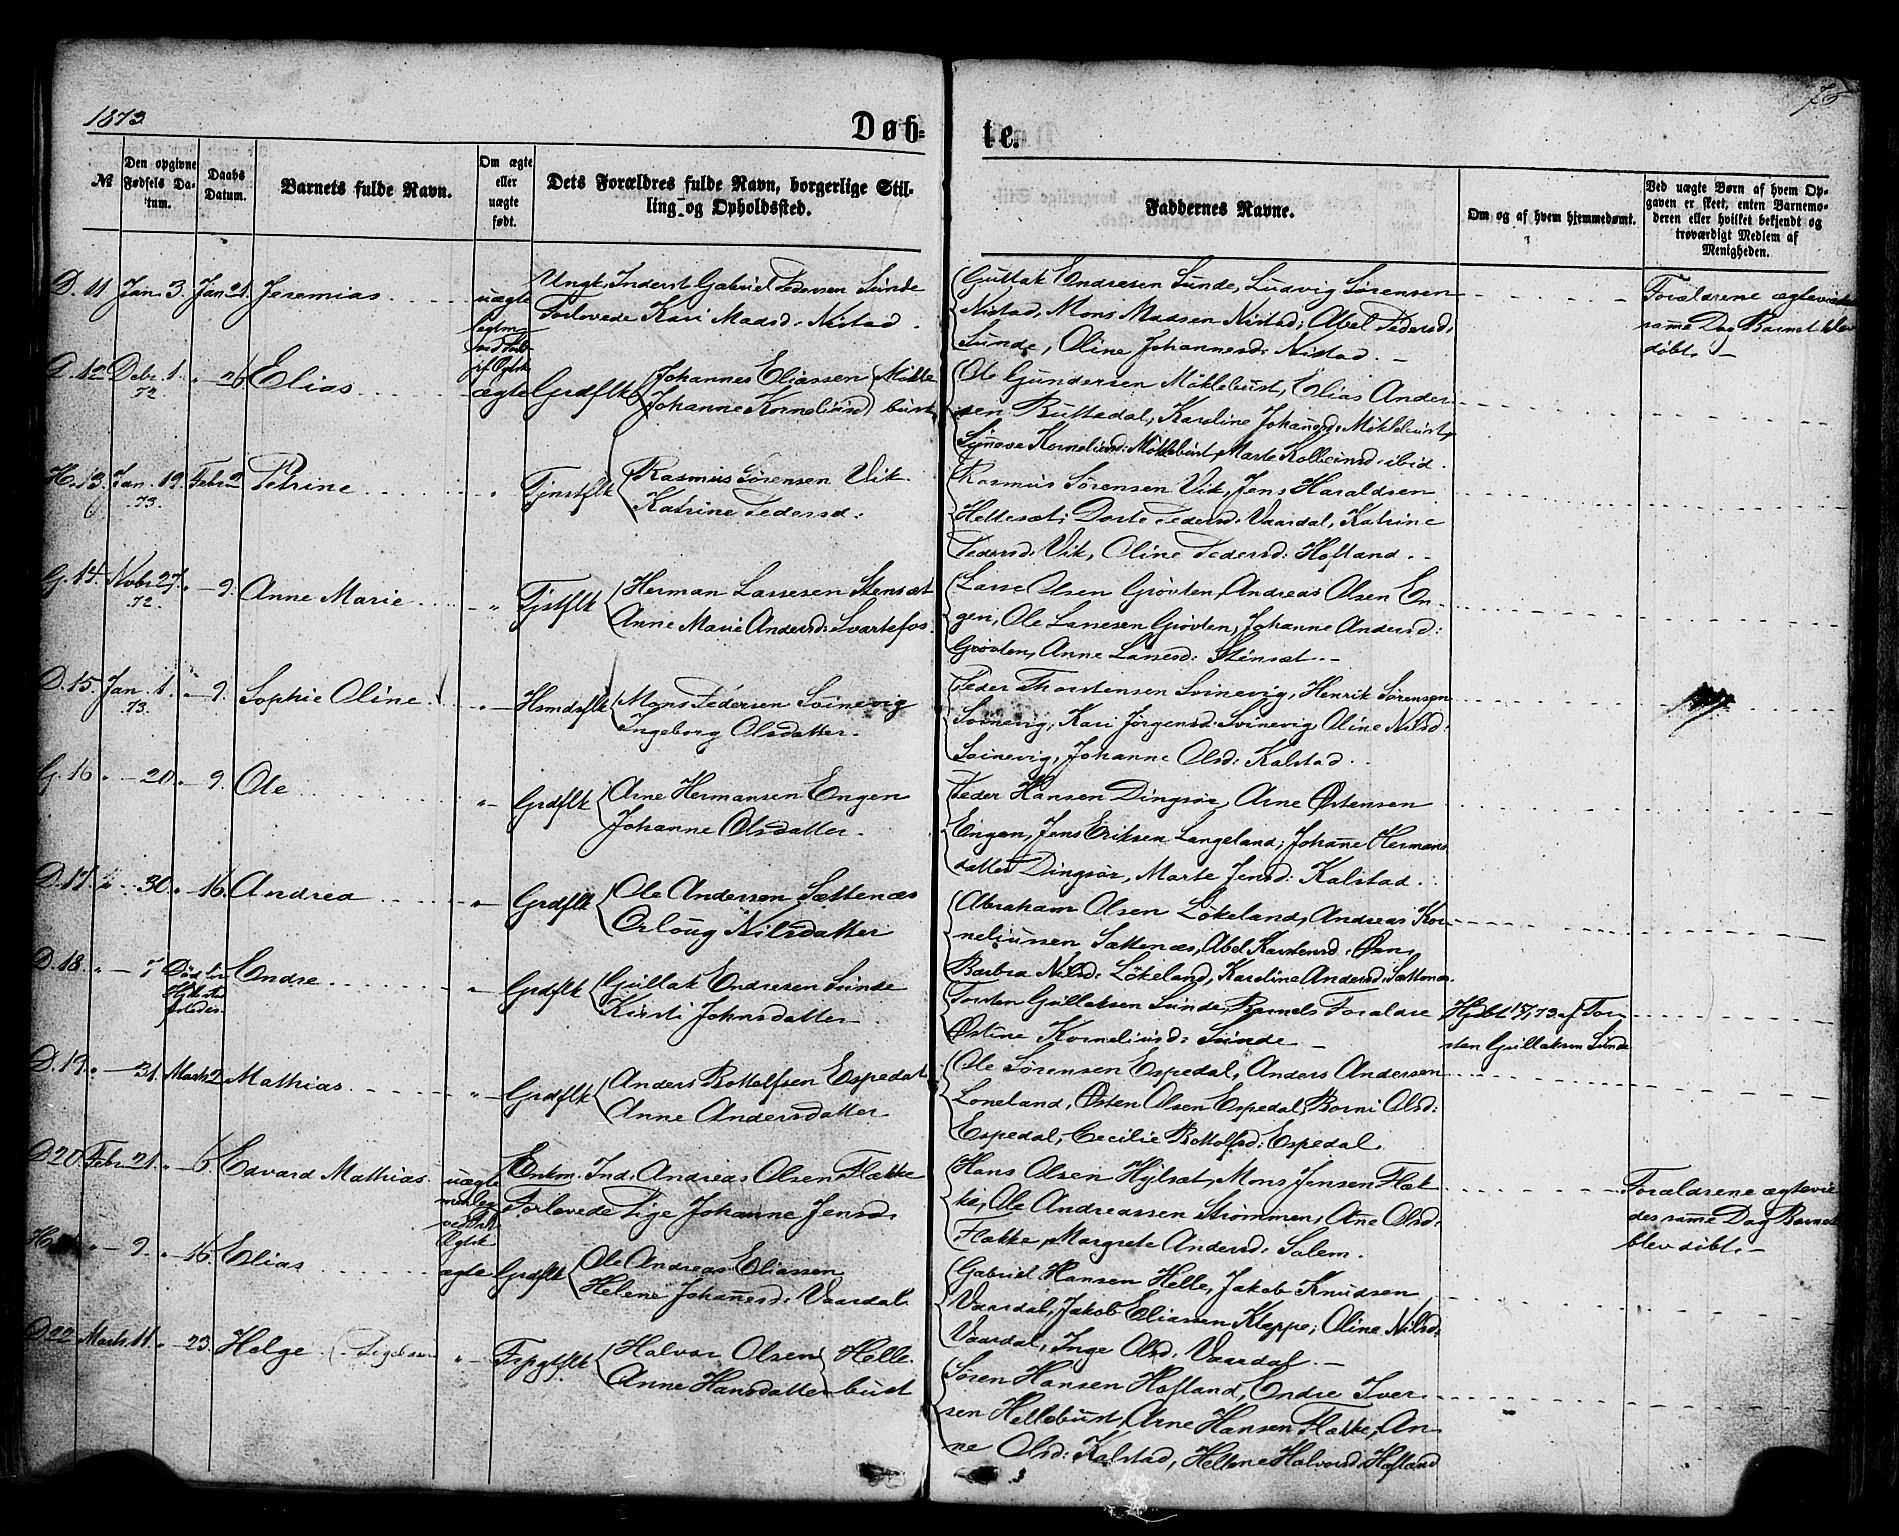 1873
75
Døb-
te.
№
Den opgivne Fødsels Da-tum.
Daabs Datum.
Barnets fulde Navn.
Om ægte eller uægte født.
Dets Forældres fulde Navn, borgerlige Stil-
ling og Opholdssted.
Faddernes Navne.
Om og af hvem hjemmedømt.
Ved uægte Børn af hvem Op-
gaven er skeet, enten Barnemo-
deren eller hvilket bekjendt og
troværdigt Medlem af
Menigheden.
D. 11 Jan. 3. Jan 21. Jeremias uægte Ungk. Inderst Gabriel Pedersen Sunde
Forlovede Kari Madsd: Nistad.
Gullak Endresen Sunde, Ludvig Sørensen
Nistad, Mons Madsen Nistad, Abel Pedersd:
Sunde, Oline Johannesd: Nistad.
Forældrene ægteviede
samme Dag Barnet blev
døbt.
D. 12 Debr. 1. 72 " - 26 Elias ægte Grdflk Johannes Eliassen Mökle
Johanne Korneliusd bust
Ole Gundersen Möklebust, Elias Ander-
sen Buttedal, Karoline Johannesd: Möklebust,
Synneve Korneliusd: Möklebust, Marte Kolbeinsd: ibid.
H. 13. Jan. 19. 73. Febr 2 Petrine " Tjnstflk Rasmus Sørensen Vik
Katrine Pedersd:
Rasmus Sørensen Vik, Jens Haraldsen
Hellesæt, Dorte Pedersd: Vaardal, Katrine
Pedersd: Vik, Oline Pedersd: Hofland.
G. 14. Novbr 27. 72. " - 9. Anne Marie " Tjstflk Herman Lassesen Stensæt
Anne Marie Andersd: Svartefos.
Lasse Olsen Grövten, Andreas Olsen En-
gen, Ole Lassesen Grövten, Johanne Andersd:
Grövten, Anne Lassesd: Stensæt.
D. 15. Jan. 1. 73. " - 9. Sophie Oline " Hsmdsflk Mons Pedersen Svinevig
Ingeborg Olsdatter.
Peder Thorstensen Svinevig, Henrik Sørensen
Svinevig, Kari Jørgensd: Svinevig, Oline Nilsd:
Svinevig, Johanne Olsd: Kalstad.
G. 16 " - 20. " - 9. Ole " Grdflk Arne Hermansen Engen
Johanne Olsdatter.
Peder Hansen Dingsør, Arne Østensen
Engen, Jens Eriksen Langeland, Johanne Hermans
datter Dingsör, Marte Jensd: Kalstad.
D. 17. " - 30. " - 16. Andrea " Grdflk Ole Andersen Sættenæs
Orloug Nilsdatter
Abraham Olsen Lökeland, Andreas Kor-
neliussen Sættenæs, Abel Karstensd: Øen,
Barbra Nilsd: Lökeland, Karoline Andersd: Sættenæs.
D. 18. " - 7 Endre " Grdflk Gullak Endresen Sunde
Kirsti Johnsdatter
Torsten Gullaksen Sunde, Barnets Forældre
Østine Korneliusd: Sunde
Hjdbt 17/1 73 af Tor-
sten Gullaksen Sunde
D. 19. " - 31. Marts 2 Mathias " Grdflk Anders Bottolfsen Espedal
Anne Andersdatter
Ole Sørensen Espedal, Anders Andersen
Loneland, Østen Olsen Espedal, Borni Olsd:
Espedal, Cecilie Bottolfsd: Espedal.
D 20. Febr. 21. " - 6. Edvard Mathias uægte Enkm. Ind. Andreas Olsen Flække
Forlovede Pige Johanne Jensd.
Hans Olsen Hylsæt, Mons Jensen Flæk
ke, Ole Andreassen Strömmen, Ane Olsd:
Flække, Margrete Andersd: Salem.
Forældrene ægtevie
des samme Dag Barnet
blev döbt.
H. " - 9. " - 16. Elias ægte Grdflk Ole Andreas Eliassen
Helene Johannesd: Vaardal.
Gabriel Hansen Helle, Jakob Knudsen
Vaardal, Jakob Eliassen Kleppe, Oline Nilsd:
Vaardal, Inge Olsd: Vaardal.
D 22. Marts 11. " - 23. Helge " Halvor Olsen Helle-
Anne Hansdatter bust
Søren Hansen Hofland, Endre Iver-
sen Hellebust, Arne Hansen Flække, An-
ne Olsd: Kalstad, Hellene Halvorsd: Hofland